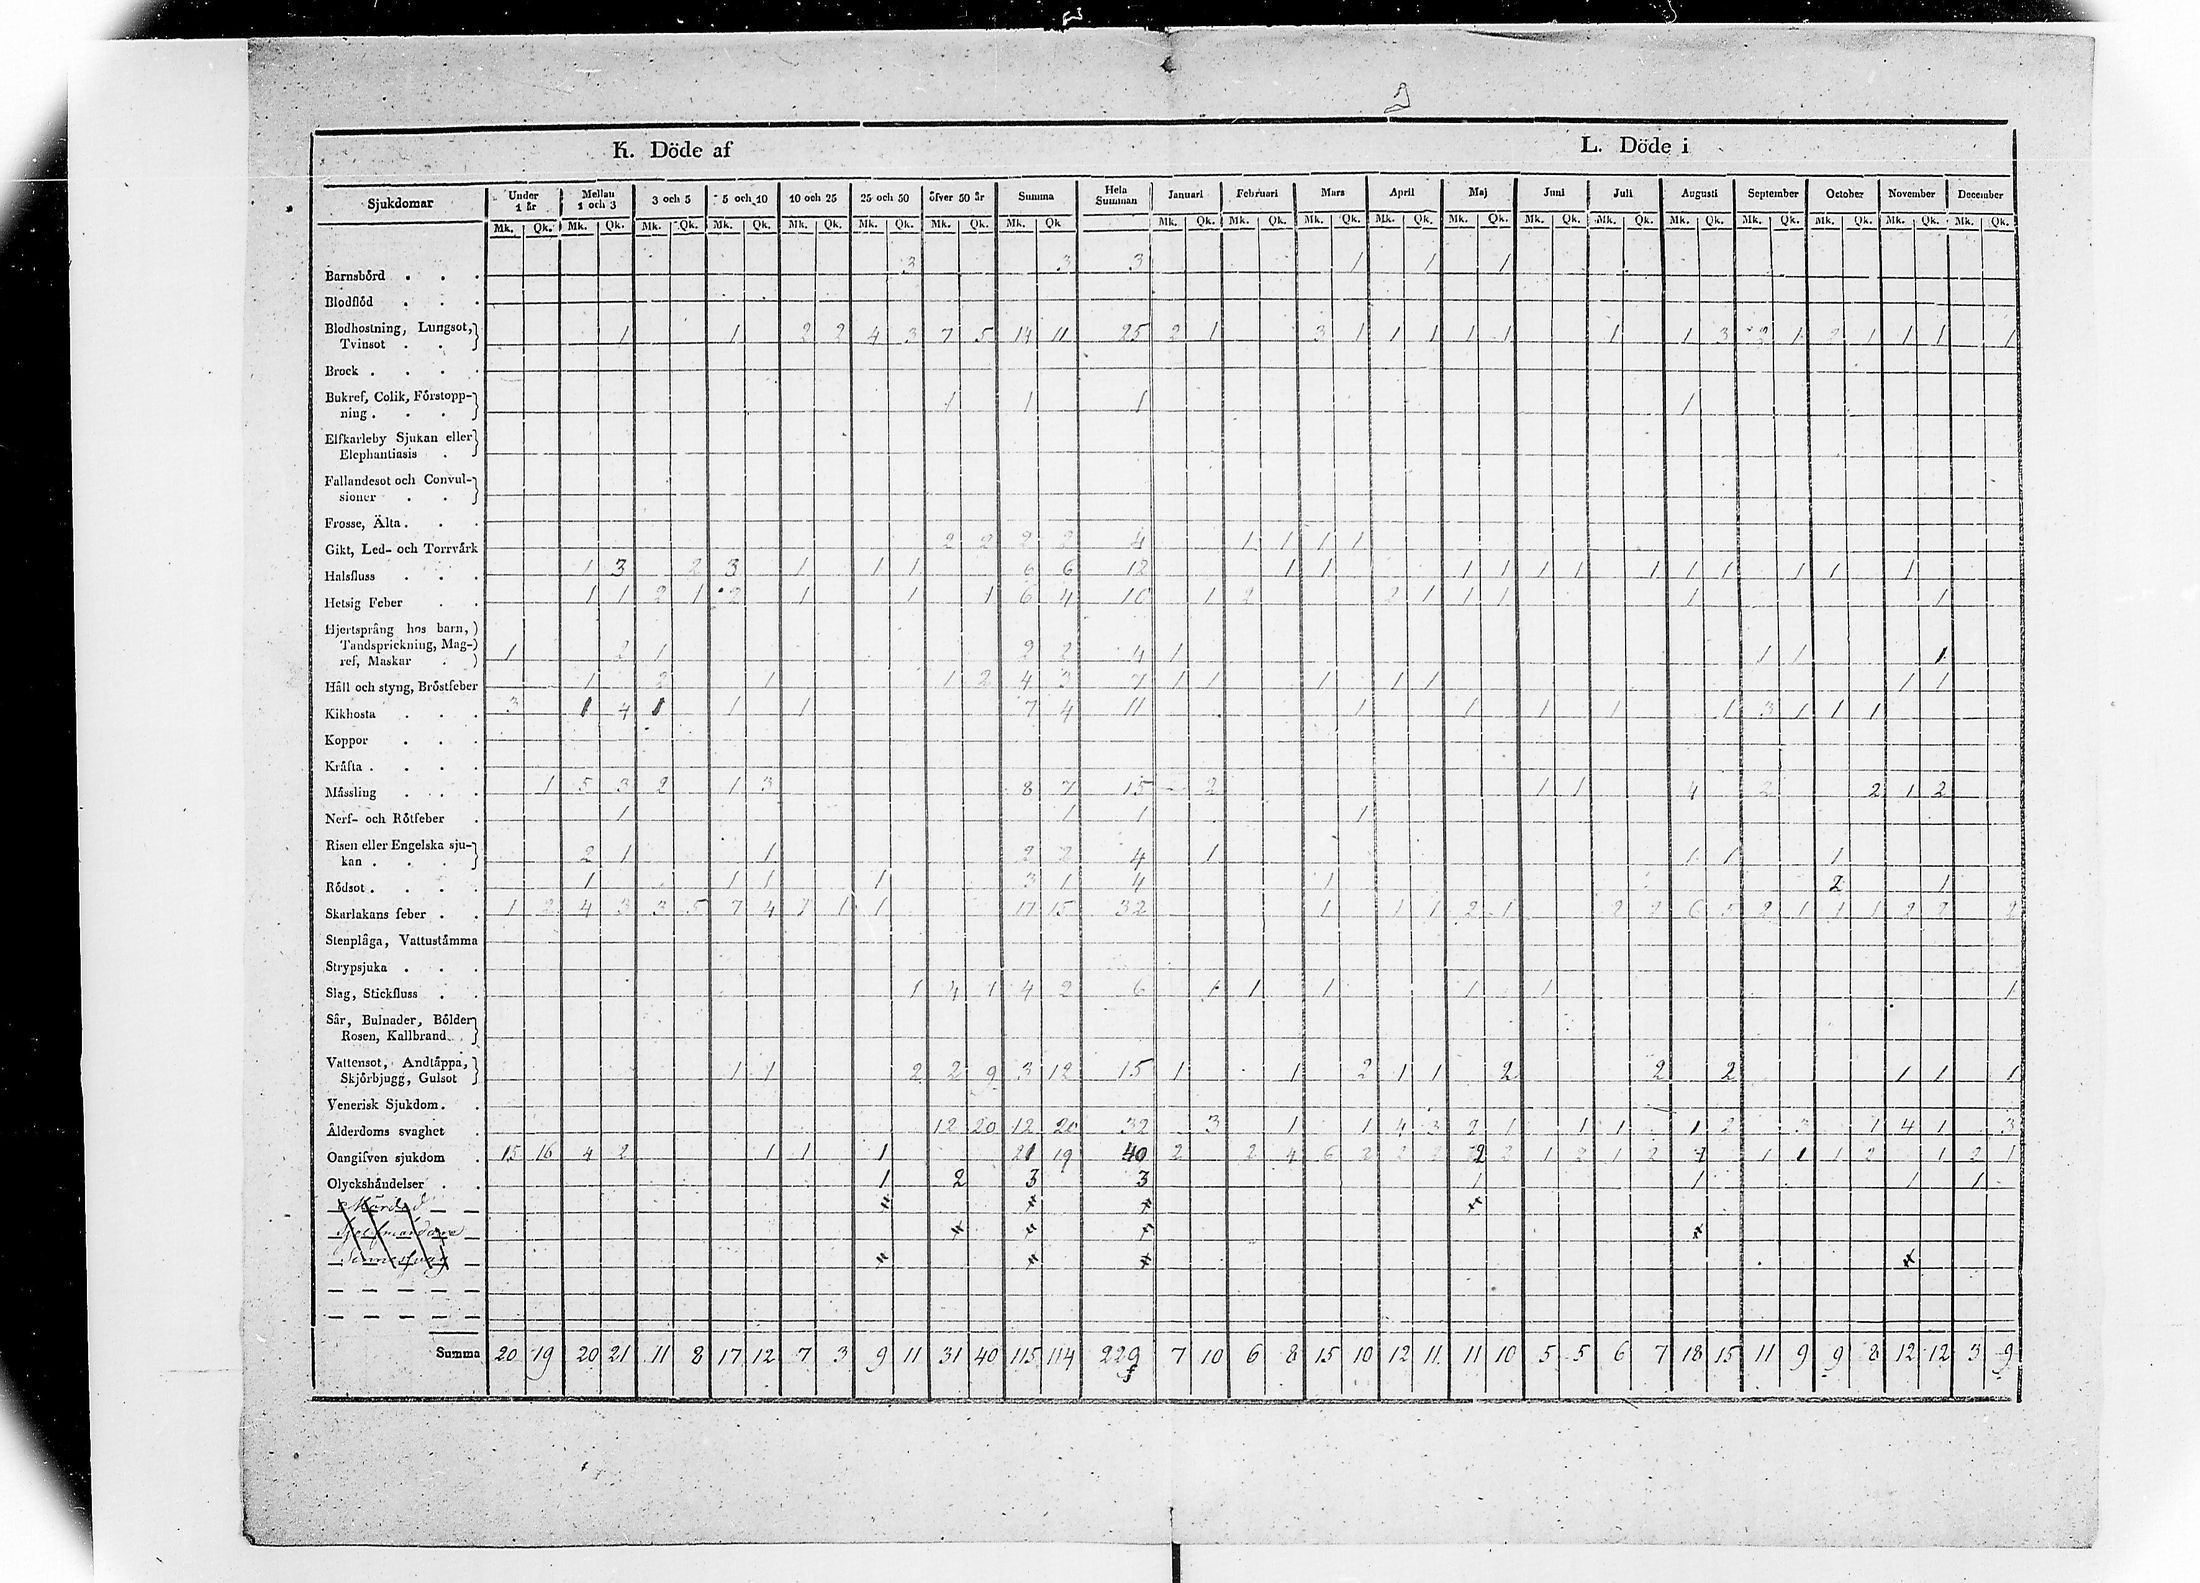 K. Döde af L. Döde i
Sjukdomar Under 1 år Mellan 1 och 3 3 och 5 5 och 10 10 och 25 25 och 50 öfver 50 år Summa Hela Summan Januari Februari Mars April Maj Juni Juli Augusti September October November December
Mk. Qk. Mk. Qk. Mk. Qk. Mk. Qk. Mk. Qk. Mk. Qk. Mk. Qk. Mk. Qk Mk. Qk. Mk. Qk. Mk. Qk. Mk. Qk. Mk. Qk. Mk. Qk. Mk. Qk. Mk. Qk. Mk. Qk. Mk. Qk. Mk. Qk. Mk. Qk.
Barnsbörd . . . 3 3 3 1 1 1
Blodflöd . . .
Blodhostning, Lungsot,
Tvinsot . . 1 1 2 2 4 3 7 5 14 11 25 2 1 3 1 1 1 1 1 1 1 3 2 1 2 1 1 1 1
Brock . . . .
Bukref, Colik, Förstopp-
ning . . . 1 1 1 1
Elfkarleby Sjukan eller
Elephantiasis .
Fallandesot och Convul-
sioner . .
Frosse, Älta . . .
Gikt, Led- och Torrvärk 2 2 2 2 4 1 1 1 1
Halsfluss . . . 1 3 2 3 1 1 1 6 6 12 1 1 1 1 1 1 1 1 1 1 1 1
Hetsig Feber . . 1 1 2 1 2 1 1 1 6 4 10 1 2 2 1 1 1 1 1
Hjertsprång hos barn,
Tandsprickning, Mag-
ref, Maskar . 1 2 1 2 2 4 1 1 1 1
Håll och styng, Bröstfeber 1 2 1 1 2 4 3 7 1 1 1 1 1 1 1
Kikhosta . . . 3 1 4 1 1 1 7 4 11 1 1 1 1 1 3 1 1 1
Koppor . . .
Kräfta . . . .
Måssling . . . 1 5 3 2 1 3 8 7 15 2 1 1 4 2 2 1 2
Nerf- och Rötfeber . 1 1 1 1
Risen eller Engelska sju-
kan . . . 2 1 1 2 2 4 1 1 1 1
Rödsot . . . . 1 1 1 1 3 1 4 1 2 1
Skarlakans feber . . 1 2 4 3 3 5 7 4 1 1 1 17 15 32 1 1 1 2 1 2 2 6 5 2 1 1 1 2 2 2
Stenplåga, Vattustämma
Strypsjuka . . .
Slag, Stickfluss . . 1 4 1 4 2 6 1 1 1 1 1 1
Sår, Bulnader, Bölder
Rosen, Kallbrand .
Vattensot, Andtäppa,
Skjörbjugg, Gulsot 1 1 2 2 9 3 12 15 1 1 2 1 1 2 2 2 1 1 1
Venerisk Sjukdom . .
Ålderdoms svaghet . 12 20 12 20 32 3 1 1 4 3 2 1 1 1 1 2 3 1 4 1 3
Oangifven sjukdom . 15 16 4 2 1 1 1 21 19 40 2 2 4 6 2 2 2 2 2 1 2 1 2 1 1 1 1 2 1 2 1
Olyckshändelser . . 1 2 3 3 1 1 1 1
Summa 20 19 20 21 11 8 17 12 7 3 9 11 31 40 115 114 229 7 10 6 8 15 10 12 11 11 10 5 5 6 7 18 15 11 9 9 8 12 12 3 9